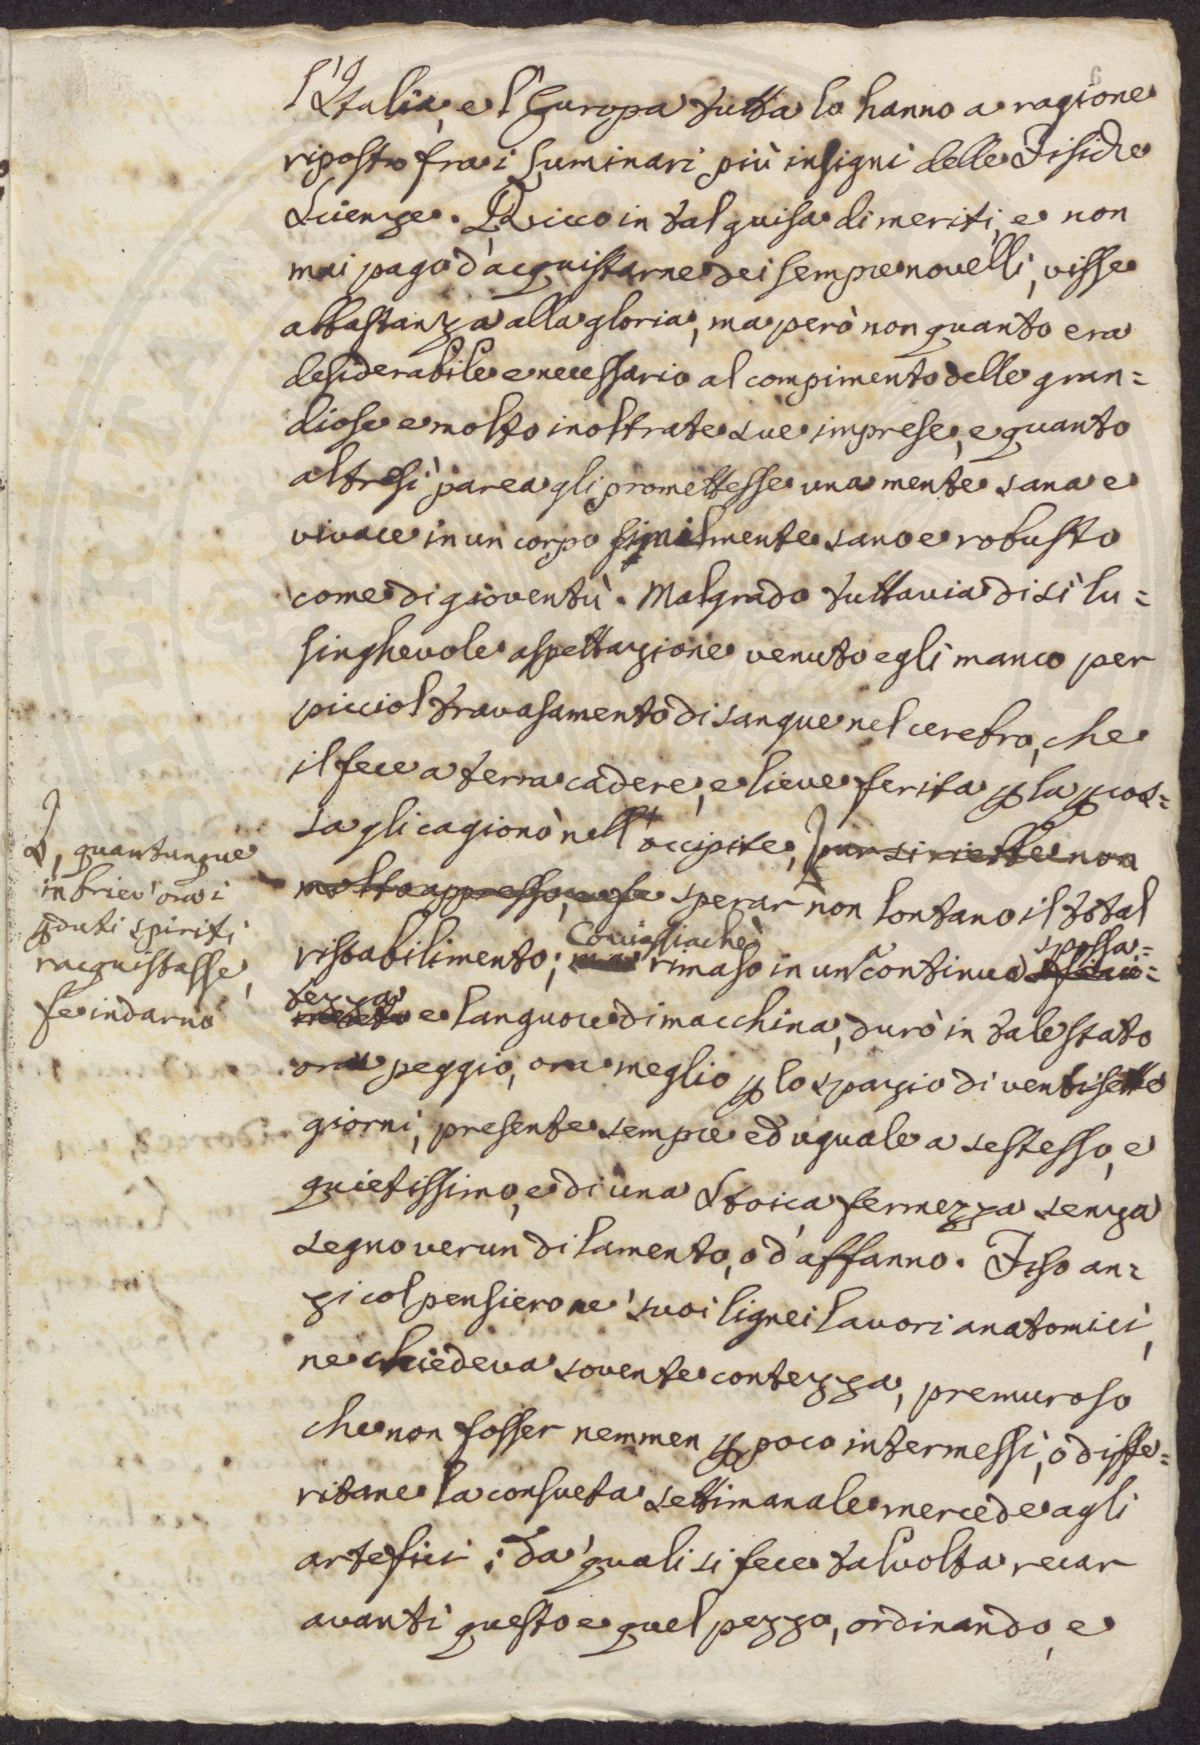 l'Italia, e l'Europa tutta lo hanno a ragione
riposto fra i luminari più insigni delle Fisiche
Scienze. Ricco in tal guisa di meriti, e non
mai pago d'acquistarne dei sempre novelli, visse
abbastanza alla gloria, ma però non quanto era
desiderabile e necessario al compimento delle gran=
diose e molto inoltrate sue imprese, e quanto
altresì parea gli promettesse una mente sana e
vivace in un corpo similmente sano e robusto
come di gioventù. Malgrado tuttavia di sì lu=
singhevole aspettazione venuto egli manco per
picciol travasamento di sangue nel cerebro, che
il fece a terra cadere, e lieve ferita p la pcos=
sa gli cagionò nell'occipite, pur si riebbe non
molto appresso, e fe sperar non lontano il total
ristabilimento; Conciossiachè rimaso in un continua spossa=
tezza e languore di macchina, durò in tale stato
ora peggio, ora meglio p lo spazio di ventisette
giorni, presente sempre ed uguale a se stesso, e
quietissimo, e di una Stoica fermezza senza
segno verun di lamento, o d'affanno. Fiso an=
zi col pensiero ne' suoi lignei lavori anatomici,
ne chiedeva sovente contezza, premuroso
che non fosser nemmen p poco intermessi, o diffe=
ritane la consueta settimanale mercede agli
artefici; da' quali si fece talvolta recar
avanti questo e quel pezzo, ordinando, e
S, quantunque
in briev'ora i
pduti spiriti
racquistasse,
fe indarno